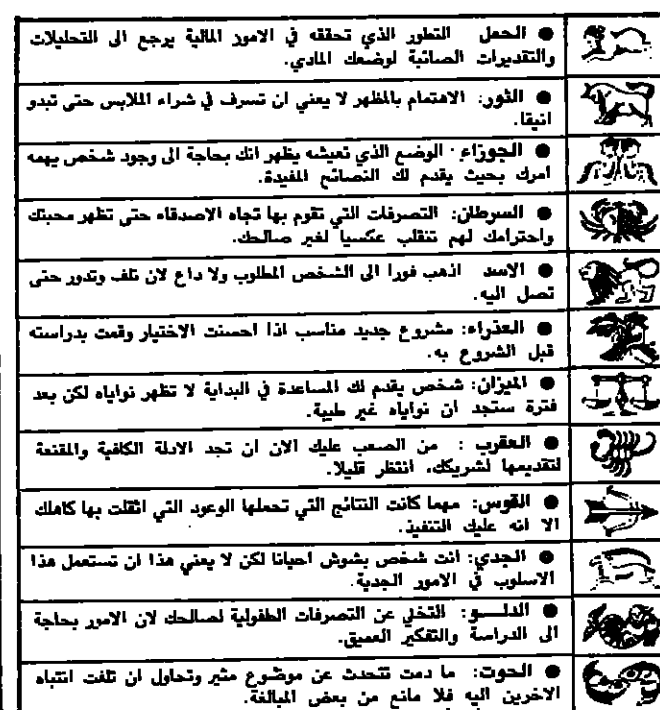 ● الحمل التطور الذي تحققه في الامور المالية يرجع الى التحليلات
والتقديرات الصائبة لوضعك المادي.
● الثور: الاهتمام بالمظهر لا يعني ان تسرف في شراء الملابس حتى تبدو
انيقا.
● الجوزاء · الوضع الذي تعيشه يظهر انك بحاجة الى وجود شخص يهمه
امرك بحيث يقدم لك النصائح المفيدة.
● السرطان: التصرفات التي تقوم بها تجاه الاصدقاء حتى تظهر محبتك
واحترامك لهم تنقلب عكسيا لغير صالحك.
● الاسد اذهب فورا الى الشخص المطلوب ولا داع لان تلف وتدور حتى
تصل اليه.
● العذراء: مشروع جديد مناسب اذا احسنت الاختيار وقمت بدراسته
قبل الشروع به.
● الميزان: شخص يقدم لك المساعدة في البداية لا تظهر نواياه لكن بعد
فترة ستجد ان نواياه غير طيبة.
● العقرب : من الصعب عليك الان ان تجد الادلة الكافية والمقنعة
لتقديمها لشريكك، انتظر قليلا.
● القوس: مهما كانت النتائج التي تحملها الوعود التي اثقلت بها كاهلك
الا انه عليك التنفيذ.
● الجدي: انت شخص بشوش احيانا لكن لا يعني هذا ان تستعمل هذا
الاسلوب في الامور الجدية.
● الدلـــو: التخلي عن التصرفات الطفولية لصالحك لان الامور بحاجة
الى الدراسة والتفكير العميق.
● الحوت: ما دمت تتحدث عن موضوع مثير وتحاول ان تلفت انتباه
الاخرين اليه فلا مانع من بعض المبالغة.